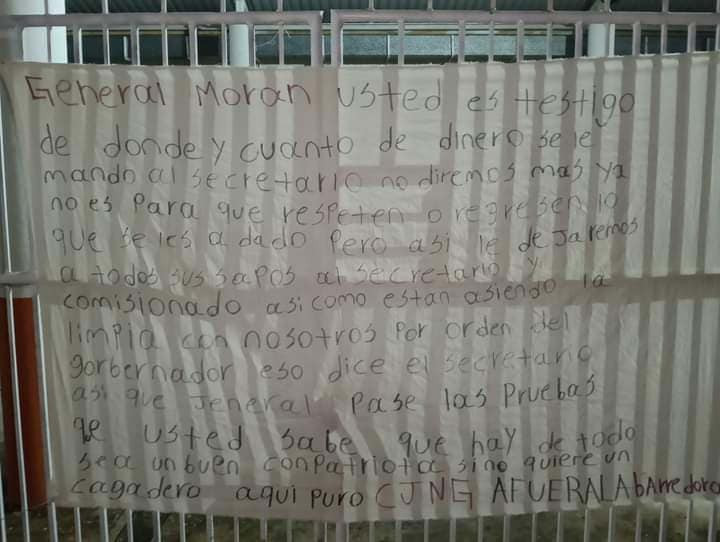 General Moran usted es testigo
de donde y cuanto de dinero se le
mando al secretario no diremos mas ya
no es Para que respeten o regresen lo
que se les a dado Pero asi le dejaremos
a todos sus sapos al secretario y
comisionado asi como estan asiendo la
limpia con nosotros Por orden del
gorbernador eso dice el secretario
asi que Jeneral Pase las Pruebas
qe usted sabe que hay de todo
sea un buen conpatriota sino quiere un
cagadero aqui puro CJNG AFUERALAbarredora